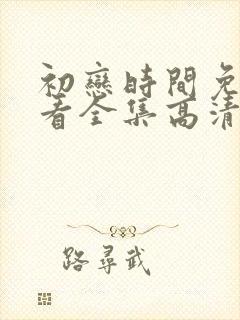 初戀時間免
看全集高清
路尋武